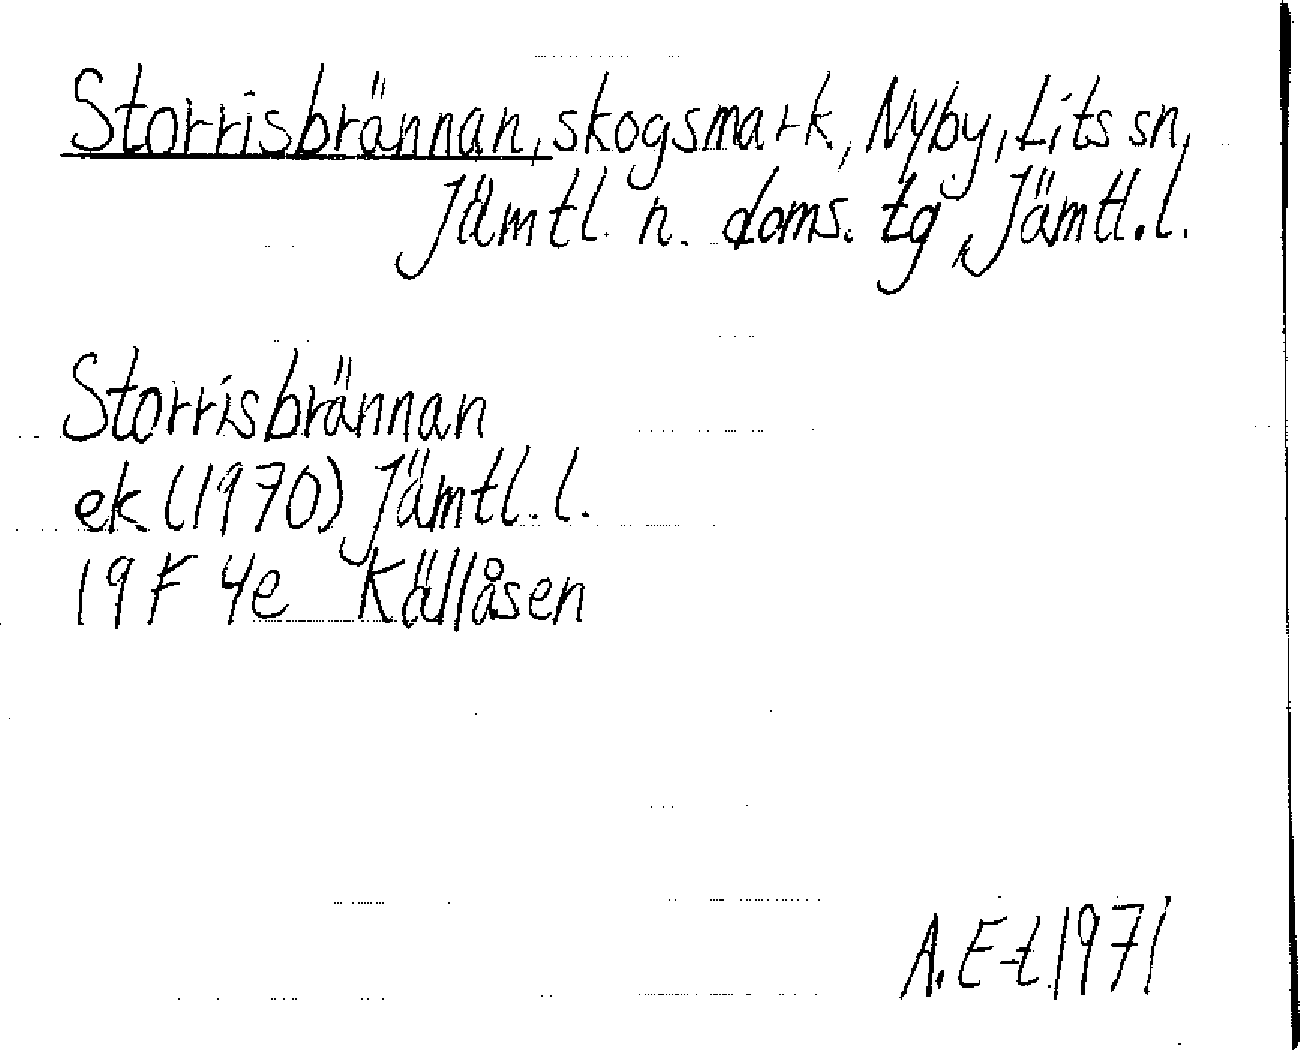 Storrisbrännan, skogsmark, Nyby, Lits sn,
Jämtl. n. doms. tg, Jämtl. l.
Storrisbrännan
ek (1970) Jämtl. l.
19F 4e Källåsen
A. E-t 1971